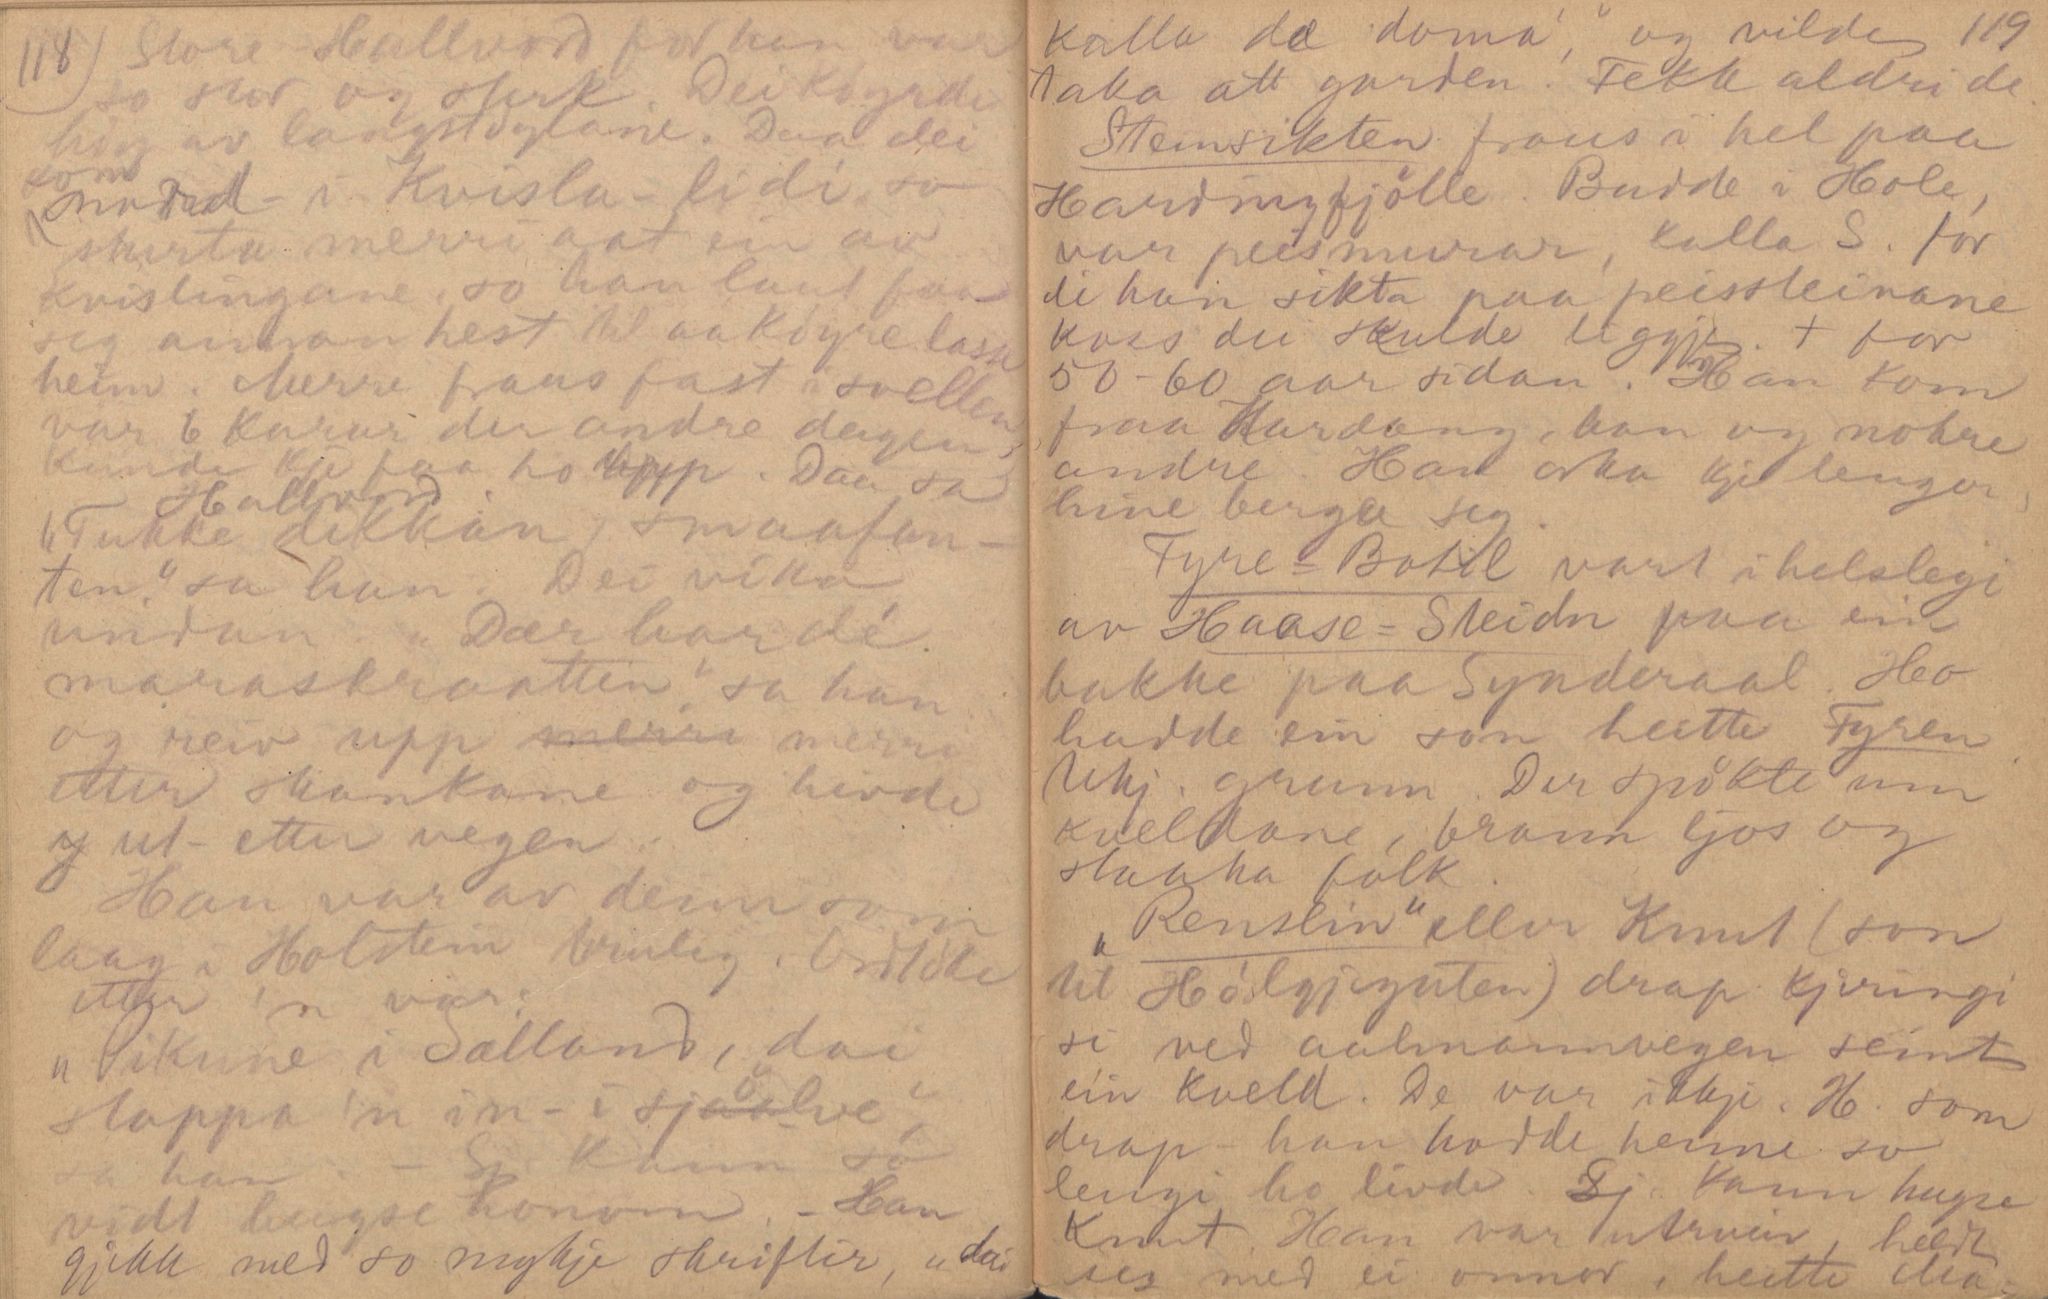 118) Store-Hallvord for han var
so stor og sterk. Dei köyrde
hög av langstöylane. Daa dei
som
snodad i Kvisla-lidi, so
skurta merri aat ein av
kvislingane, so han laut faa
seg annan hest til aa köyre lasse
heim. Merri fraus fast i svellen
var 6 karar der andre dagen,
kunde kje faa ho upp. Daa sa
Hallvord.
"Tukke dikkan, smaafan-
ten," sa han. Dei vika
undan. "Dær har dé
maraskraatten," sa han
og reiv upp merri merri
etter skankane og hivde
ut-etter vegen.
Han var av deim som
laag i Holstein truleg. Ordtöke
etter 'n var:
"Pikune i Sælland, dai
slappa 'n in-i sjölve",
sa han. - Sj. kann so
vidt hugse honom. - Han
gjekk med so mykje skrifter, "dai
119
kalla dæ domá," og vilde
taka att garden. Fekk aldri de.
Steinsikten fraus i hel paa
Hardingfjölle. Budde i Hole,
var peismurar, kalla S. for
di han sikta paa peissteinane
koss dei skulde liggje. + for
50-60 aar sidan. Han kom
fraa Hardang, han og nokre
andre. Han orka kje lenger,
hine berga seg.
Fyre-Botil vart ihelslegi
av Haase-Steidn paa ein
bakke paa Synderaal. Ho
hadde ein son heitte Fyren
Ukj. grunn. Der spökte um
kveldane, brann ljos og
skaaka folk.
"Renslin" eller Knut (son
til Hólgjeguten) drap kjeringi
si ved aalmannvegen seint
ein kveld. De var ikkje H. som
drap - han hadde henne so
lengi ho livde. Sj. kann hugse
Knut. Han var utrueir, heldt
seg med ei onnor, heitte Ma-